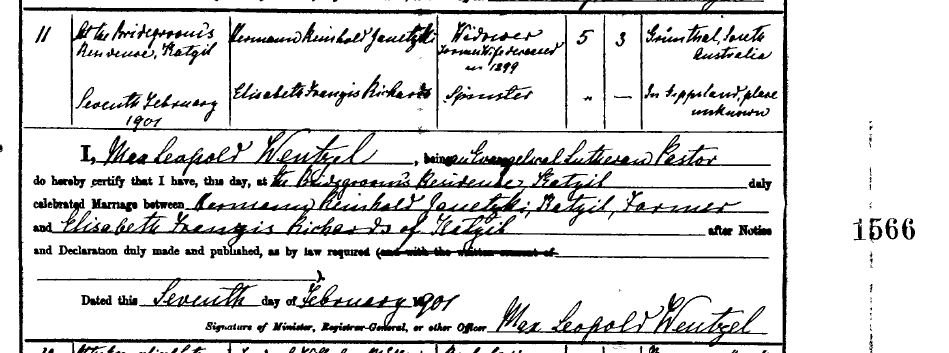 11 At the Bridegroom's Hermann Reinhold Janetzki Widower 5 3 Grünthal, South
Residence, Katyil Former Wife deceased Australia
in 1899
Seventh February Elisabeth Francis Richards Spinster " — In Gippsland, place
1901 unknown
I, Max Leopold Wentzel, being an Evangelical Lutheran Pastor
do hereby certify that I have, this day, at the Bridegroom's Residence, Katyil duly
celebrated Marriage between Hermann Reinhold Janetzki, Katyil, Farmer
and Elisabeth Francis Richards of Katyil after Notice
and Declaration duly made and published, as by law required (and with the written consent of
).
1566
Dated this Seventh day of February 1901
Signature of Minister, Registrar-General, or other Officer Max Leopold Wentzel